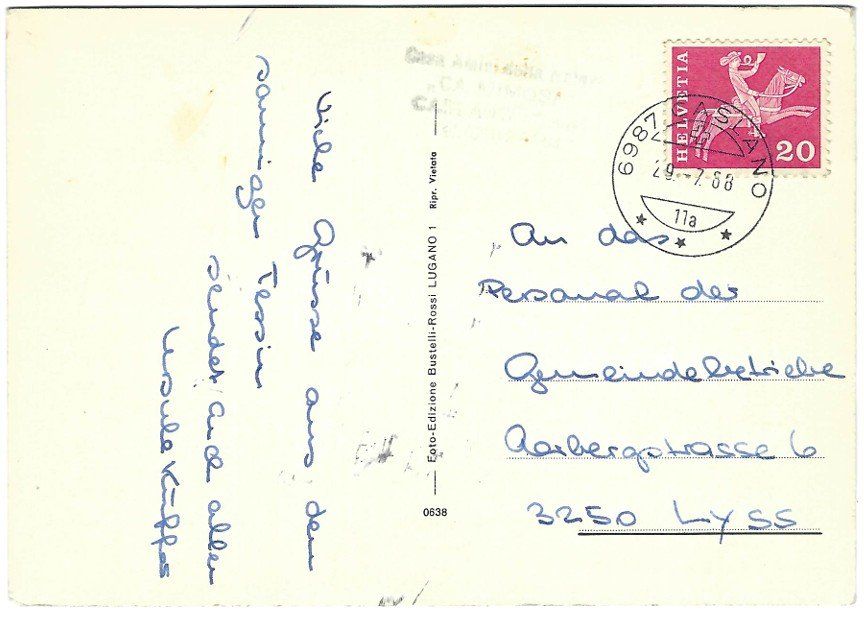 Viele Grüsse aus dem
sonnigen Tessin
sendet Euch allen
Ursula
Foto-Edizione Bustelli-Rossi LUGANO 1 Ripr. Vietata
0638
HELVETIA
20
6987 CASLANO
29.-7.68
11a
An das
Personal der
Gemeindebetriebe
Aarbergstrasse 6
3250 Lyss